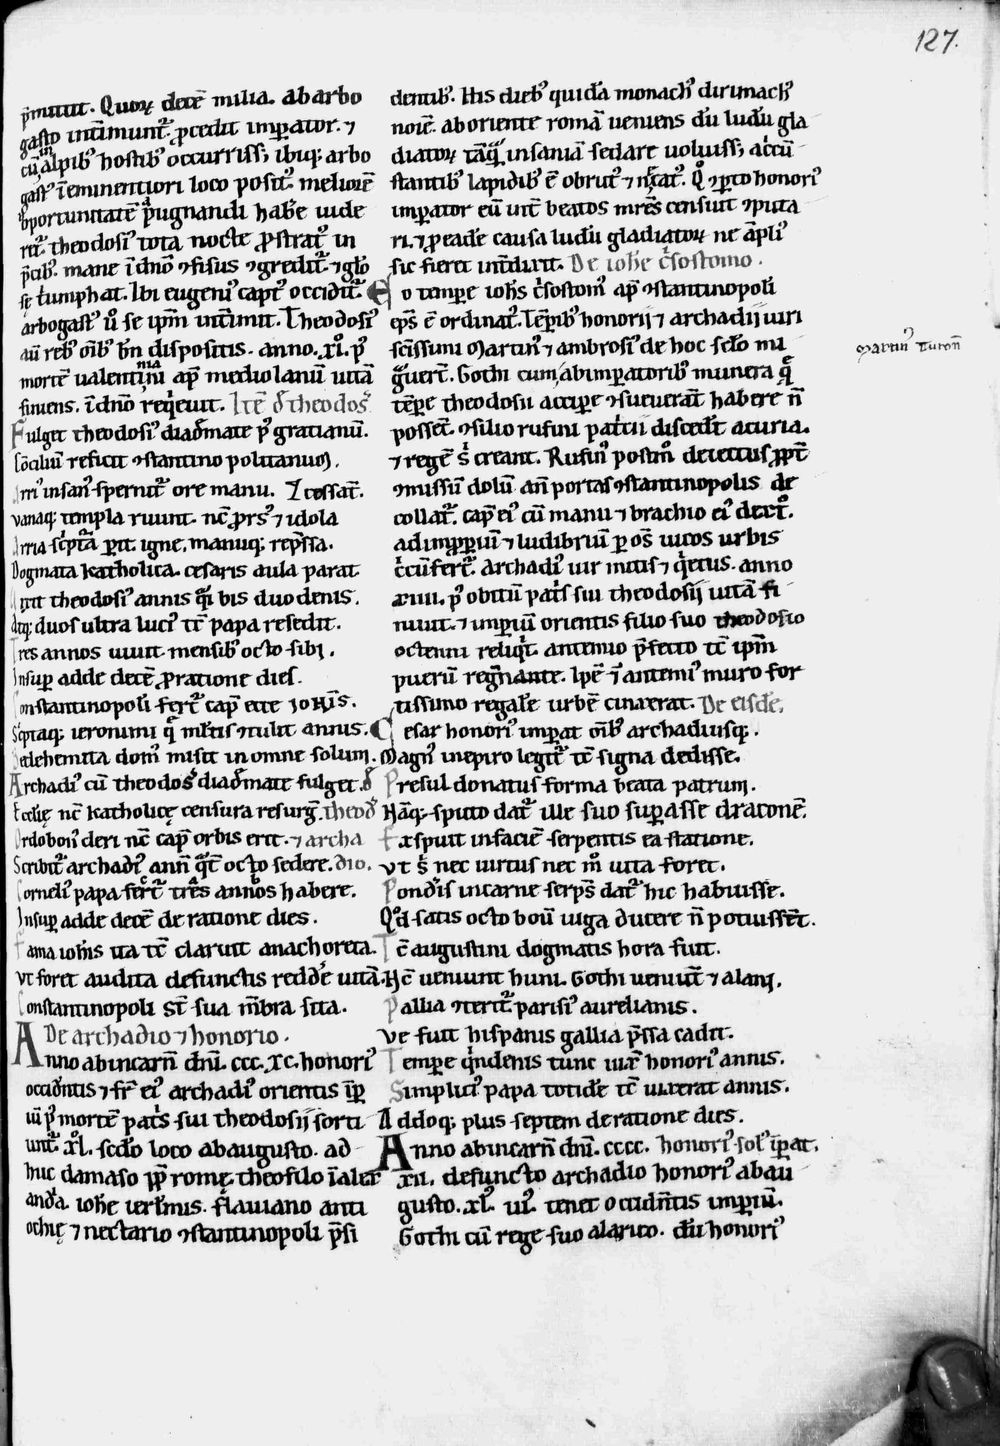 127.
p̄mittit. Quoꝝ decē milia. ab arbo
gasto int̄imunt᷑. ꝓcedit imꝑator. ⁊
cū in alpibꝰ hostibꝰ occurrissꝫ ibiqꝫ arbo
gastꝰ ī eminentiori loco positꝰ meliorē
oportunitatē pugnandi habēe uide
rit᷑. theodosiꝰ tota nocte ꝓstratꝰ in
p̄cibꝰ. mane ī dn̄o ꝯfisus ꝯgredit᷑ ⁊ glo
se t̄umphat. Ibi eugeniꝰ captꝰ occidit᷑.
arbogastꝰ ů se ip̄m int̄imit. Theodosiꝰ
aū rebꝰ oīb bn̄ dispositis. anno. xi. pꝰ
mortē ualentiniani ap̄ mediolanū uitā
finiens. ī dn̄o req̇euit. Itē d̄ theodosꝰ
Fulget theodosiꝰ diad̄mate pꝰ gratianū.
Cōciliū reficit ꝯstantinopolitanum.
Arriꝰ insanꝰ spernit᷑ ore manu. ⁊ cessat.
vanaqꝫ templa ruunt. nc̄ ꝓrsꝰ ⁊ idola
Arria sc̄pta ꝑit. igne, manuqꝫ rep̄ssa.
Dogmata katholica. cesaris aula parat
theodosiꝰ annis bis duodenis.
Atqꝫ duos ultra luciꝰ tc̄ papa resedit.
Tres annos uiuit mensibꝰ octo sibi.
Insuꝑ adde decē ꝓ ratione dies.
Constantinopoli fert᷑ cap̄ ecce iohis̄.
Sc̄ptaqꝫ ieronimi q̄ ml̄tis ꝯtulit annis.
Betlehemita domꝰ misit in omne solum.
Archadiꝰ cū theodosꝰ diad̄mate fulget. d̄
Ecclie nc̄ katholice censura resurḡ. theodꝰ
Ordo bonꝰ cleri nc̄ cap̄ orbis erit. ⁊ archa
Scribit᷑ archadiꝰ ann̄ octo sedere. dio.
Corneliꝰ papa fert᷑ tres annos habere.
Insuꝑ adde decē de ratione dies.
Fama iohis̄ ita tc̄ claruit anachoreta.
vt foret audita defunctis redd̄e uitā.
Constantinopoli st̄ sua m̄bra sita.
De archadio ⁊ honorio.
Anno ab incarn̄ dn̄i. ccc. xc. honoriꝰ
occid̄ntis ⁊ fr̄ eiꝰ archadiꝰ orientis īꝑ
iū pꝰ mortē pat̄s sui theodosij sorti
unt᷑. xl. sc̄do loco ab augusto. ad
huc damaso pp̄ rome. theofilo ī alex
and̄a. ioh̄e ierl̄mis. flauiano anti
ochie ⁊ nectario ꝯstantinopoli p̄si
dentibꝰ. His diebꝰ quidā monachꝰ dirimachꝰ
noīe. ab oriente romā ueniens dū ludū gla
diatoꝝ insaniā sedare uoluissꝫ accū
stantibꝰ lapidibꝰ ē obrutꝰ ⁊ Q̊ ꝯꝑto honoriꝰ
imꝑator eū int̄ beatos mr̄es censuit ꝯputa
ri. ⁊ ꝓ eadē causa ludū gladiatoꝝ ne āpliꝰ
sic fieret int̄dixit. De ioh̄e c̄sostomo.
Eo tempe iohs̄ c̄sostomꝰ ap̄ ꝯstantinopolī
ep̄s ē ordinatꝰ. Tēꝑibꝰ honorij ⁊ archadij uiri
sc̄issimi Martinꝰ ⁊ ambrosiꝰ de hoc sclo mi
Martinꝰ Turon̄
ḡuert̄. Gothi cum ab imꝑatoribꝰ munera q̄
tēꝑe theodosii acciꝑe ꝯsueuerāt habere n̄
possēt. ꝯsilio rufini paticii disced̄t a curia.
⁊ regē s̄ creant. Rufinꝰ postm̊ detectus ꝓpt̄
ꝯmissū dolū an̄ portas ꝯstantinopolis de
collat᷑. cap̄ eiꝰ cū manu ⁊ brachio eiꝰ dext̊.
ad imꝓꝑiū ⁊ ludibriū ꝑ oēs uicos urbis
c̄cūfert᷑. Archadiꝰ uir mitis ⁊ q̇etus. anno
xiiii. pꝰ obitū pat̄s sui theodosij uitā fi
niuit. ⁊ imꝑiū orientis filio suo theodosio
octenni reliq̇t. antemio p̄fecto tc̄ ip̄m
puerū regn̄ante. Ipē ⁊ antemiꝰ muro for
tissimo regalē urbē cinxerat. De eisdē.
Cesar honoriꝰ imꝑat oībꝰ archadiusqꝫ.
Magnꝰ in epiro legit᷑ tc̄ signa dedisse.
Presul donatus forma beata patrum.
Nāqꝫ sputo dat᷑ ille suo suꝑasse draconē.
Exspuit in faciē serpentis ea statione.
vt s̄ nec uirtus nec m̊ uita foret.
Pond̄is in carne serpēs dat᷑ hic habuisse.
Qd̊ satis octo boū iuga ducere n̄ potuissēt.
Tc̄ augustini dogmatis hora fuit.
Hc̄ ueniunt huni. Gothi ueniūt ⁊ alani.
Pallia ꝯterit᷑ parisiꝰ aurelianis.
Ve fuit hispanis gallia p̄ssa cadit.
Tempe q̇ndenis tunc honoriꝰ annis.
Simpliciꝰ papa totidē tc̄ uixerat annis.
Addoqꝫ plus septem de ratione dies.
Anno ab incarn̄ dn̄i. cccc. honoriꝰ solꝰ īꝑat.
xii. defuncto archadio honoriꝰ ab au
gusto. xlꝰ uiꝰ tenet occidn̄tis imꝑiū.
Gothi cū rege suo alarico. dū honoriꝰ